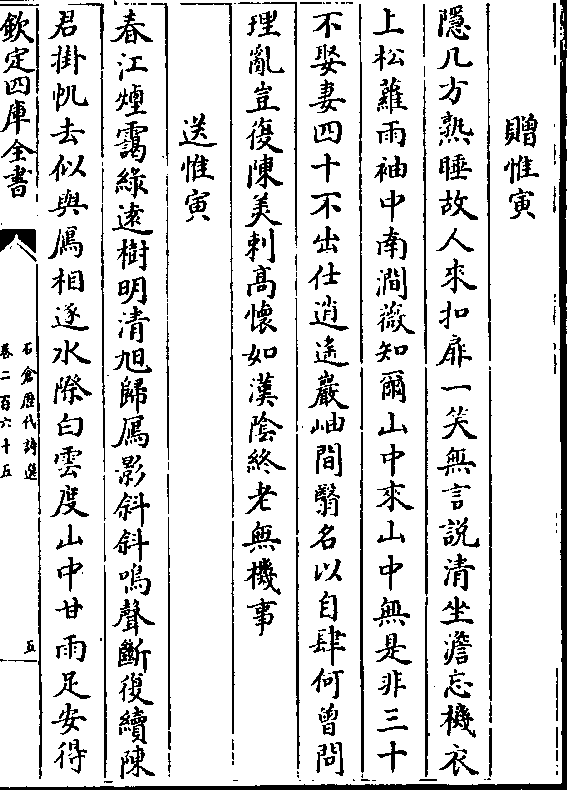 贈惟寅
隱几方熟睡故人來扣扉一笑無言說清坐澹忘機衣
上松蘿雨袖中南澗薇知爾山中來山中無是非三十
不娶妻四十不出仕逍遙巖岫間翳名以自肆何曾問
理亂豈復陳美刺高懷如漢陰終老無機事
送惟寅
春江煙靄綠遠樹明清旭歸鴈影斜斜鳴聲斷復續陳
君掛帆去似與鴈相逐水際白雲度山中甘雨足安得
欽定四庫全書
石倉歷代詩選
卷二百六十五
五